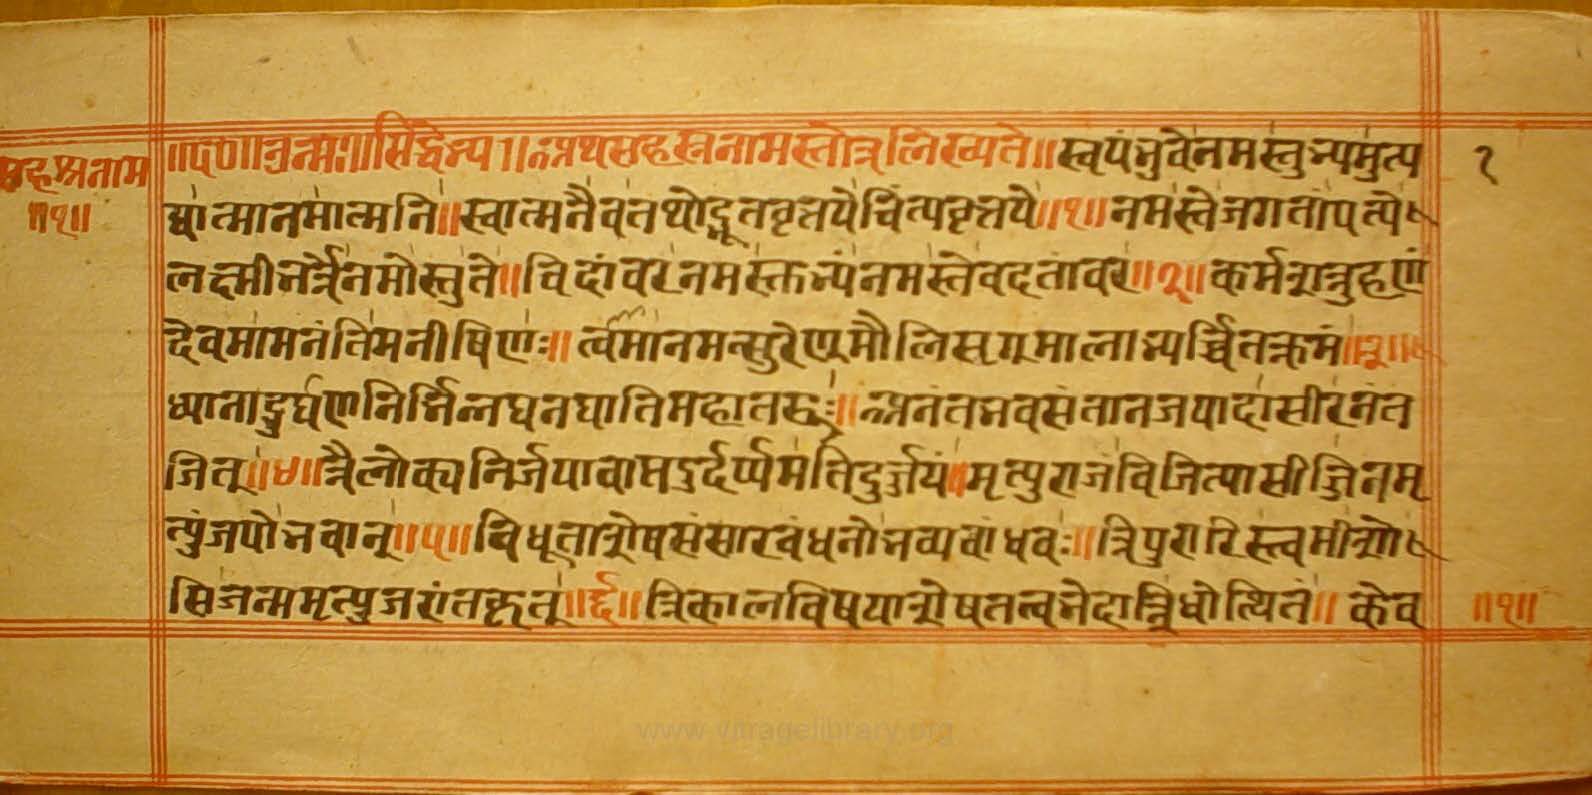 सहश्रनाम
॥१॥
॥ए६०॥ॐनमः॥सिद्धेभ्य॥अथसहस्रनामस्तोत्रलिख्यते॥स्वयंभुवेनमस्तुभ्यमुत्प १
द्यात्मानमात्मनि॥स्वात्मनैवतथोद्भूतवृत्तयेचिंत्यवृत्तये॥१॥नमस्तेजगतांपत्ये
लक्ष्मीभर्त्रेनमोस्तुते॥चिदांवरनमस्तुभ्यंनमस्तेवदतांवर॥२॥कर्मशत्रुहणं
देवमामनंतिमनीषिणः॥त्वमानमत्सुरेण्मौलिस्रग्मालाभ्यर्च्चितक्रमं॥३॥
ध्यानाद्रुर्घणनिर्भिन्नघनघातिमहातरुः॥अनंतभवसंतानजयादासीरनंत
जित्॥४॥त्रैलोक्यनिर्जयावाप्तदुर्दर्प्पमतिदुर्ज्जयं॥मृत्युराजंविजित्यासीज्जिनमृ
त्युंजयोभवान्॥५॥विधूताशेषसंसारबंधनोभव्यबांधवः॥त्रिपुरारिस्त्वमीशो
सिजन्ममृत्युजरांतकृत्॥६॥त्रिकालविषयाशेषतत्वभेदात्त्रिधोत्थितं॥केव ॥१॥
www.vitragelibrary.org